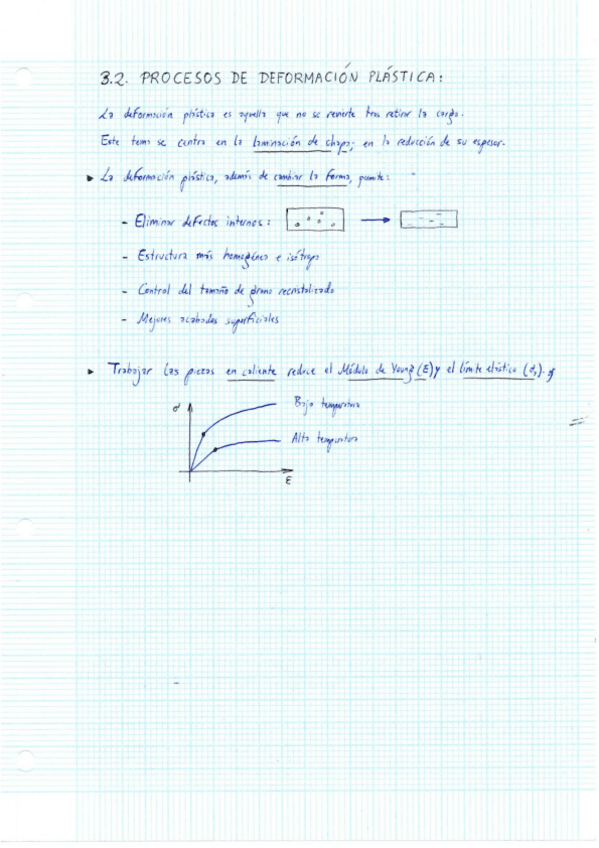 3.2. PROCESOS DE DEFORMACIÓN PLÁSTICA:
La deformación plástica es aquella que no se revierte tras retirar la carga.
Este tema se centra en la laminación de chapa; en la reducción de su espesor.
▸ La deformación plástica, además de cambiar la forma, permite:
- Eliminar defectos internos:
- Estructura más homogénea e isótropa
- Control del tamaño de grano recristalizado
- Mejores acabados superficiales
▸ Trabajar las piezas en caliente reduce el Módulo de Young (E) y el límite elástico
σ
Baja temperatura
Alta temperatura
ε